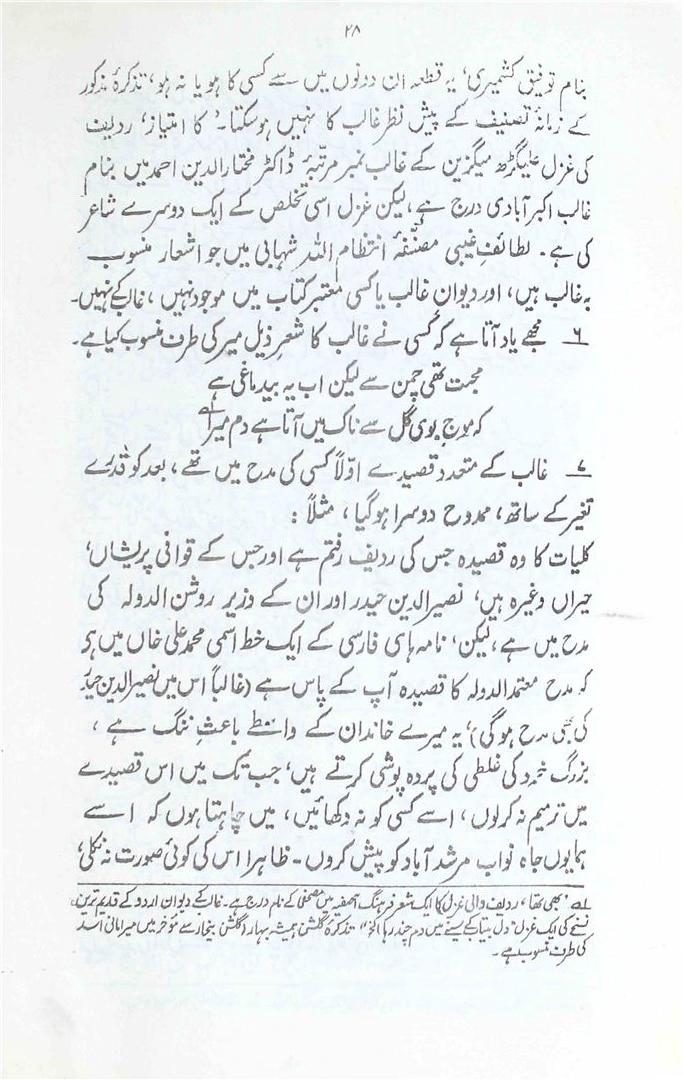 ۲۸
بنام توفیق کشمیری، یہ قطعہ ان دونوں میں سے کسی کا ہو یا نہ ہو، تذکرۂ مذکور
کے زمانۂ تصنیف کے پیش نظر غالب کا نہیں ہوسکتا۔ ’کا امتیاز‘ ردیف
کی غزل علیگڑھ میگزین کے غالب نمبر مرتّبۂ ڈاکٹر مختار الدین احمد میں بنام
غالب اکبر آبادی درج ہے، لیکن غزل اسی تخلص کے ایک دوسرے شاعر
کی ہے۔ لطائفِ غیبی مصنّفۂ انتظام اللہ شہابی میں جو اشعار منسوب
بہ غالب ہیں، اور دیوان غالب یا کسی معتبر کتاب میں موجود نہیں، غالب کے نہیں۔
۶۔ مجھے یاد آتا ہے کہ کسی نے غالب کا شعر ذیل میر کی طرف منسوب کیا ہے۔
محبت تھی چمن سے لیکن اب یہ بیدماغی ہے
کہ موجِ بوی گل سے ناک میں آتا ہے دم میرا ؎۱
۷۔ غالب کے متعدد قصیدے اوّلاً کسی کی مدح میں تھے، بعد کو قدرے
تغیر کے ساتھ، ممدوح دوسرا ہوگیا، مثلاً:
کلیات کا وہ قصیدہ جس کی ردیف رفتم ہے اور جس کے قوافی پریشاں،
حیراں وغیرہ ہیں، نصیر الدین حیدر اور ان کے وزیر روشن الدولہ کی
مدح میں ہے، لیکن، نامہ ہای فارسی کے ایک خط اسمی محمد علی خاں میں ہے
کہ مدح معتمد الدولہ کا قصیدہ آپ کے پاس ہے (غالباً اس میں نصیر الدین حیدر
کی بھی مدح ہوگی)، یہ میرے خاندان کے واسطے باعثِ ننگ ہے،
بزرگ خرد کی غلطی کی پردہ پوشی کرتے ہیں، جب تک میں اس قصیدے
میں ترمیم نہ کرلوں، اسے کسی کو نہ دکھائیں، میں چاہتا ہوں کہ اسے
ہمایوں جاہ نواب مرشد آباد کو پیش کروں۔ ظاہرا اس کی کوئی صورت نہ نکلی،
؎۱ ’بھی تھا‘ ردیف والی غزل کا ایک شعر فرہنگ آصفیہ میں مصحفی کے نام درج ہے۔ غالب کے دیوان اردو کے قدیم ترین
نسخے کی ایک غزل ”دل بیتاب کے سینے میں دم چند رہا الخ“ تذکرۂ گلشن ہمیشہ بہار (گلشن بیخار سے مؤخر) میں میر امانی اسد
کی طرف منسوب ہے۔